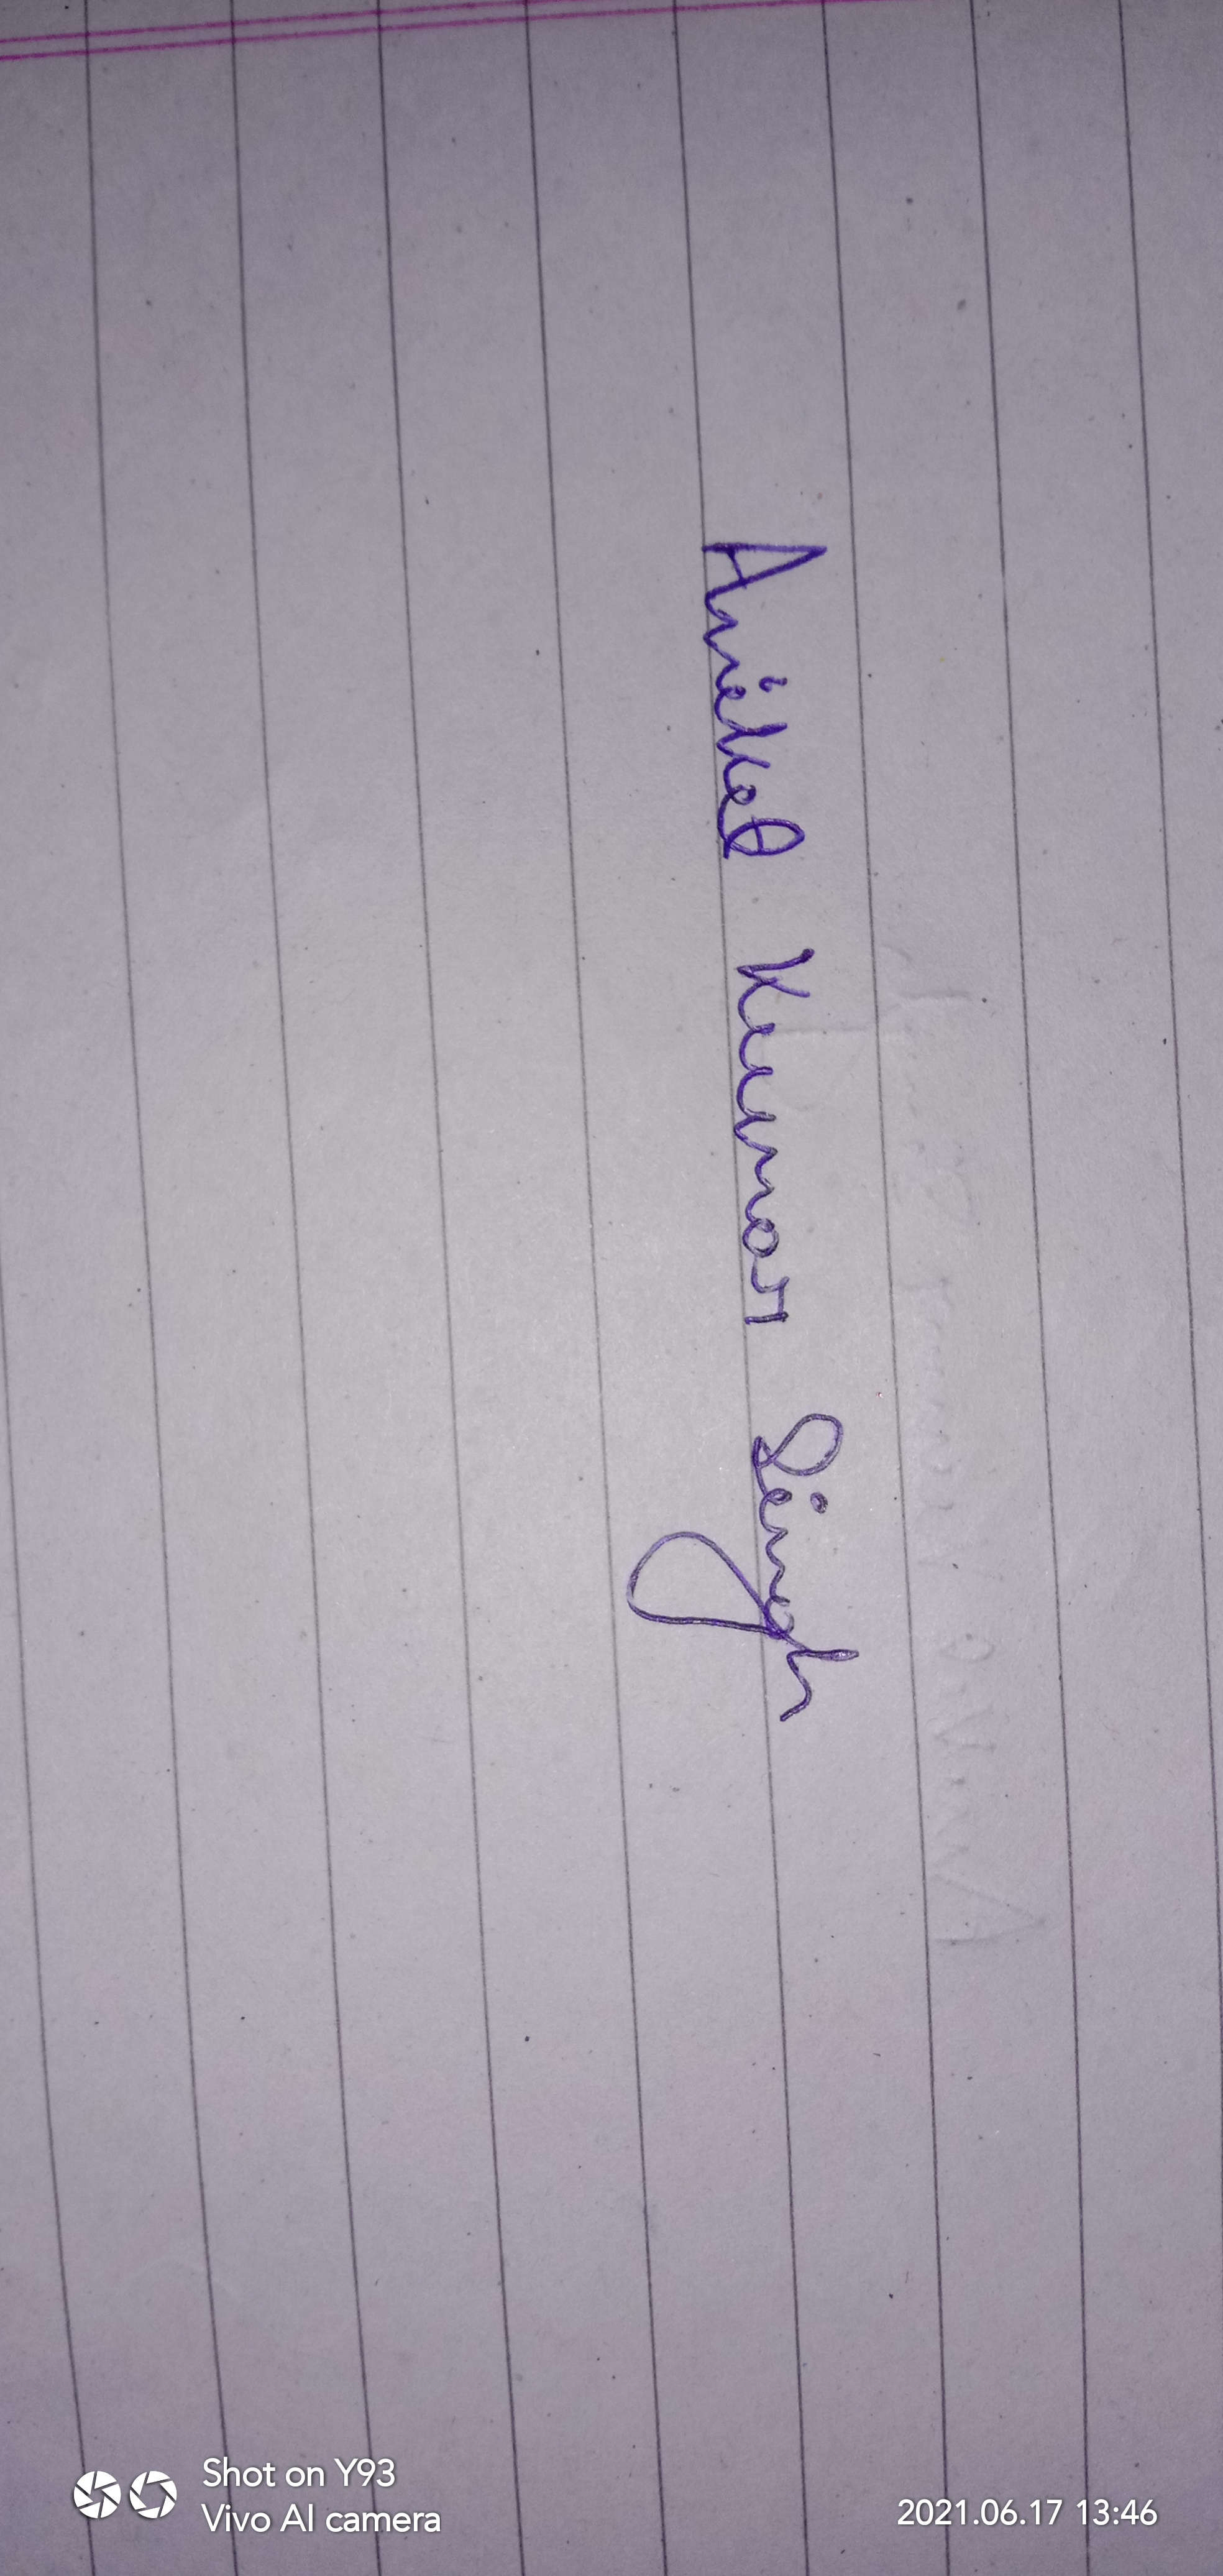 Aniket Kumar Singh
Shot on Y93
Vivo AI camera
2021.06.17 13:46